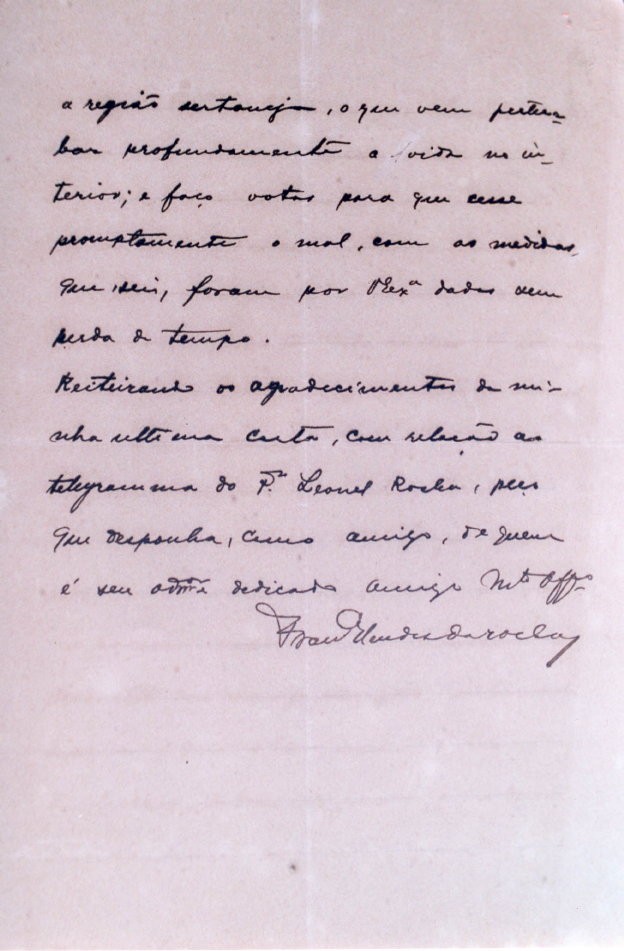 a região sertaneja, o que vem pertur-
bar profundamente a vida no in-
terior; e faço votos para que cesse
promptamente o mal, com as medidas
que, sei, foram por VExª dadas sem
perda de tempo.
Reiteirando os agradecimentos da mi-
nha ultima carta, com relação ao
telegramma do Pe Leonel Rocha, peço
que desponha, como amigo, de quem
é seu admor dedicado amigo Mto Affo
Mendes da Rocha